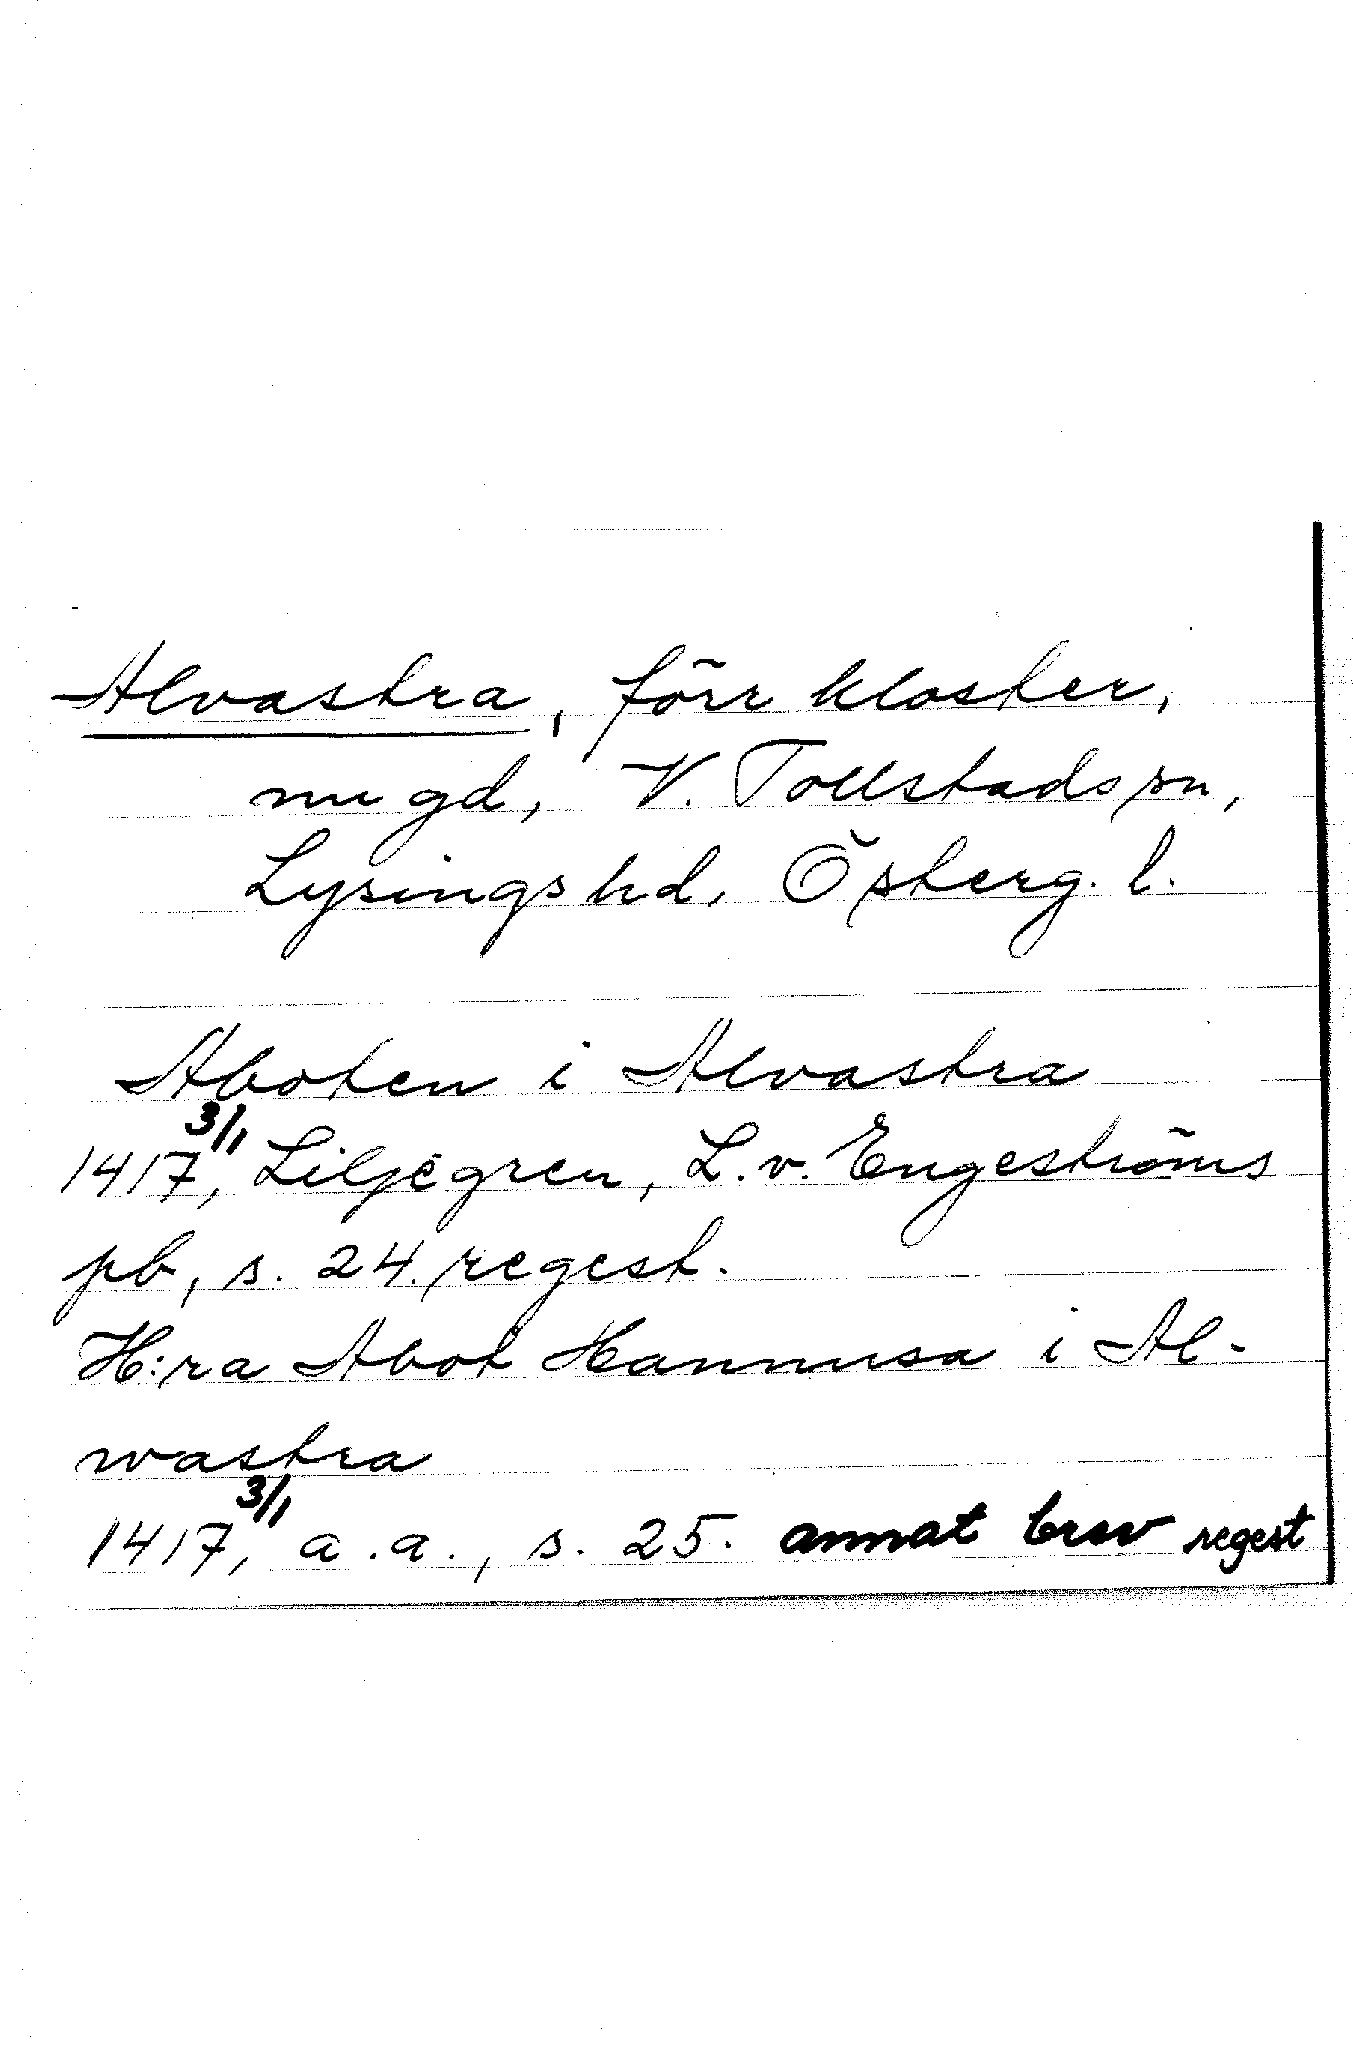 Alvastra, förr kloster,
nu gd, V. Tollstads sn,
Lysings hd, Österg. l.
Aboten i Alvastra
1417 3/1, Liljegren, L. v. Engeströms
pb, s. 24. regest.
H:ra Abot Hannusa i Al-
wastra
1417 3/1, a.a., s. 25. annat brev regest